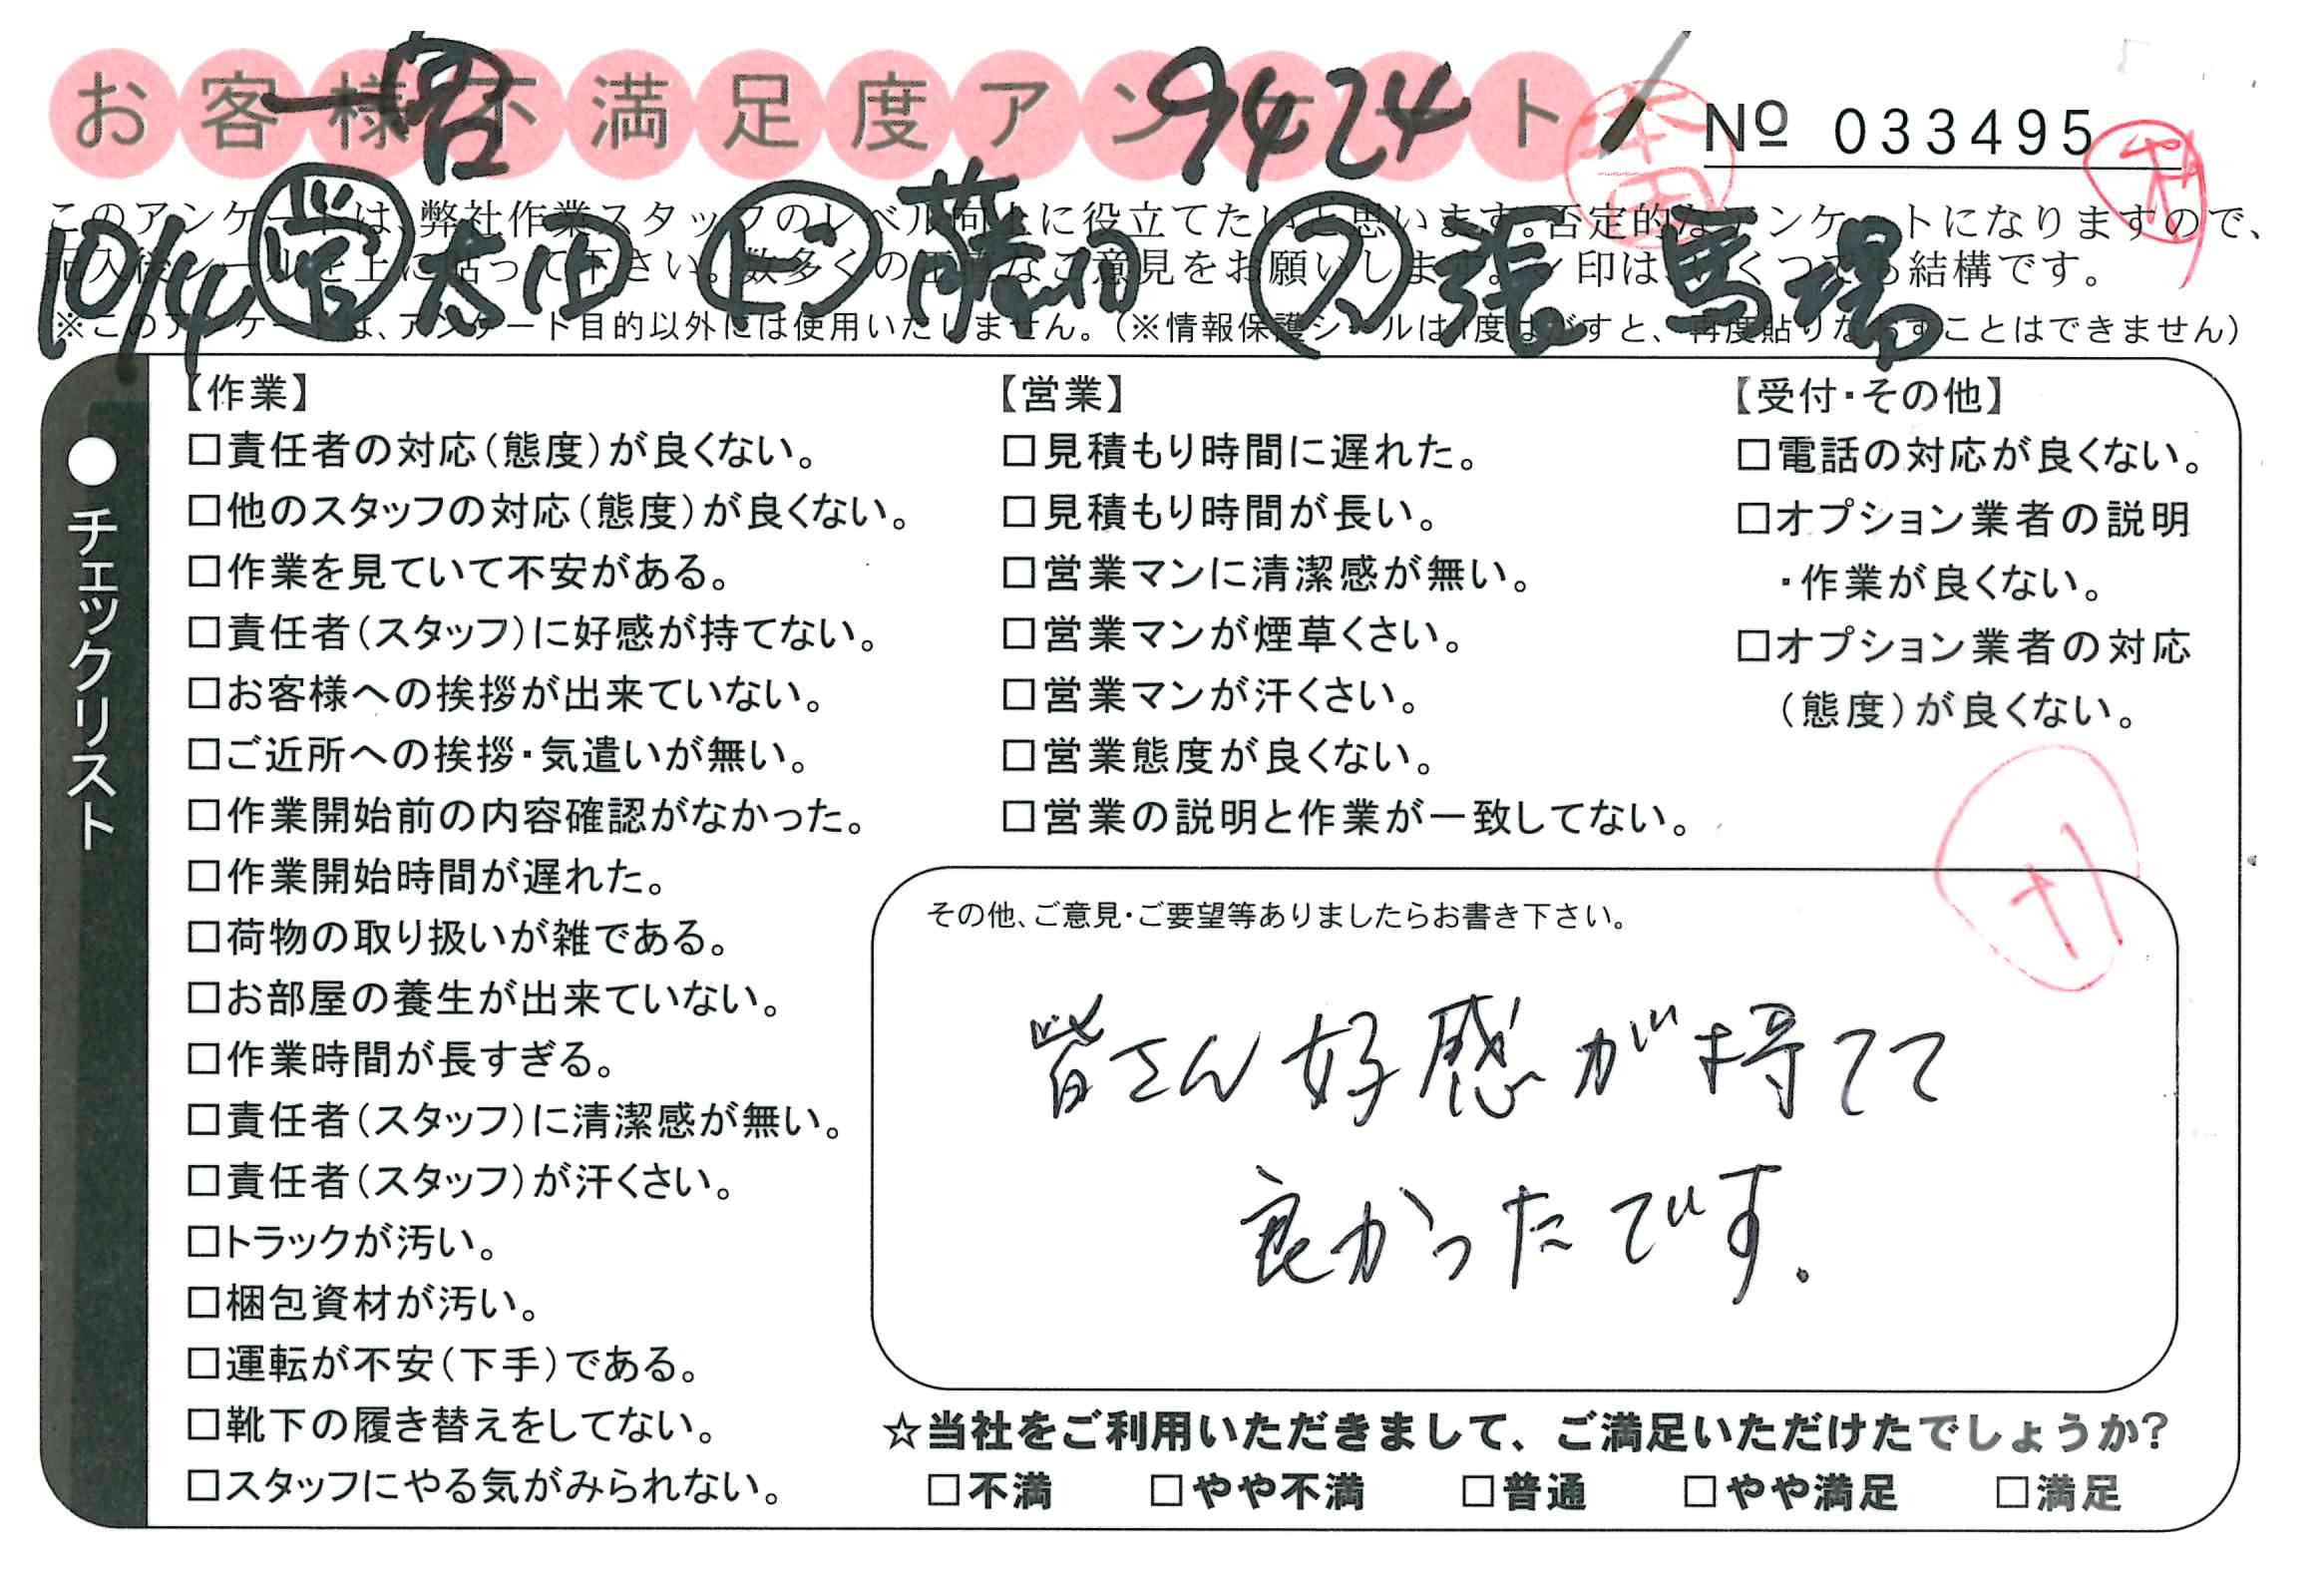 お客様不満足度アンケート
9424
№ 033495
このアンケートは、弊社作業スタッフのレベル向上に役立てたいと思います。否定的なアンケートになりますので、
記入後シールを上に貼って下さい。数多くの正直なご意見をお願いします。レ印はいくつでも結構です。
※このアンケートは、アンケート目的以外には使用いたしません。(※情報保護シールは1度はがすと、再度貼りなおすことはできません)
10/4 営 太田 ド 藤田 ス 張 馬場
●チェックリスト
【作業】
□責任者の対応(態度)が良くない。
□他のスタッフの対応(態度)が良くない。
□作業を見ていて不安がある。
□責任者(スタッフ)に好感が持てない。
□お客様への挨拶が出来ていない。
□ご近所への挨拶・気遣いが無い。
□作業開始前の内容確認がなかった。
□作業開始時間が遅れた。
□荷物の取り扱いが雑である。
□お部屋の養生が出来ていない。
□作業時間が長すぎる。
□責任者(スタッフ)に清潔感が無い。
□責任者(スタッフ)が汗くさい。
□トラックが汚い。
□梱包資材が汚い。
□運転が不安(下手)である。
□靴下の履き替えをしてない。
□スタッフにやる気がみられない。
【営業】
□見積もり時間に遅れた。
□見積もり時間が長い。
□営業マンに清潔感が無い。
□営業マンが煙草くさい。
□営業マンが汗くさい。
□営業態度が良くない。
□営業の説明と作業が一致してない。
【受付・その他】
□電話の対応が良くない。
□オプション業者の説明
・作業が良くない。
□オプション業者の対応
(態度)が良くない。
その他、ご意見・ご要望等ありましたらお書き下さい。
皆さん好感が持てて
良かったです.
☆当社をご利用いただきまして、ご満足いただけたでしょうか?
□不満 □やや不満 □普通 □やや満足 □満足